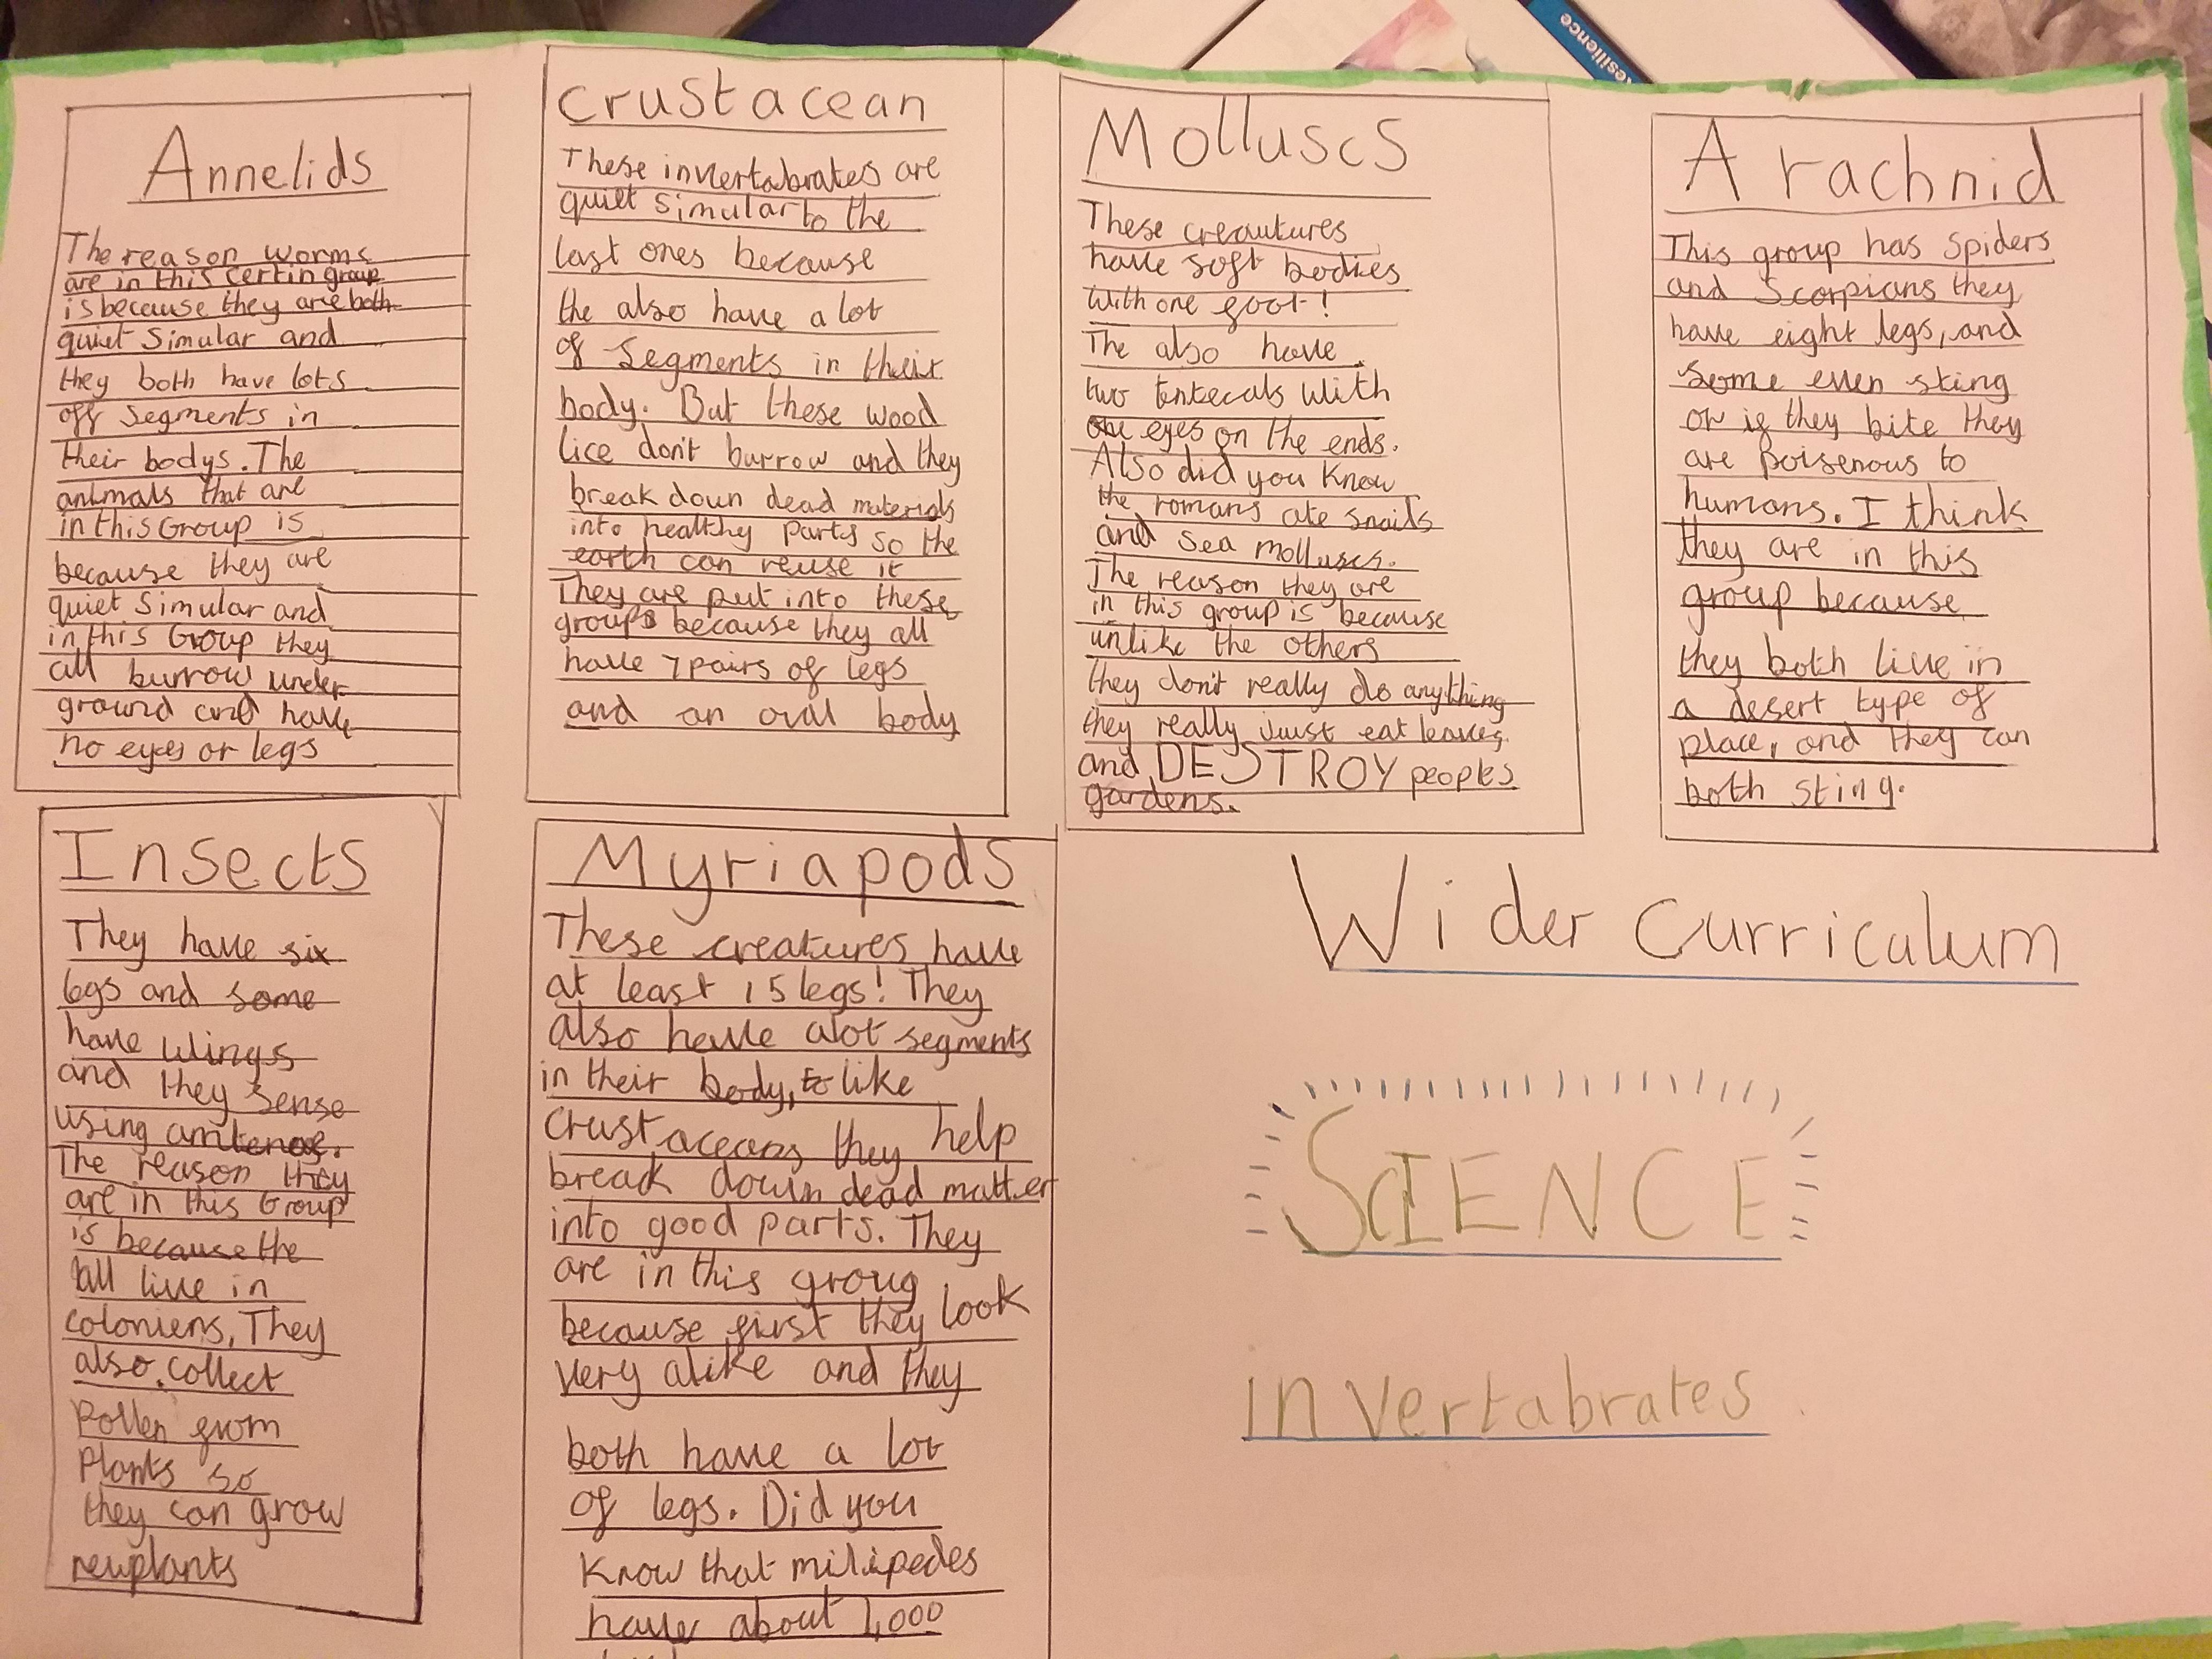 Resilience
Annelids
The reason worms
are in this certin group
is because they are both
quiet Simular and
they both have lots
off segments in
their bodys. The
animals that are
in this Group is
because they are
quiet simular and
in this Group they
all burrow under
ground and have
no eyes or legs
Crustacean
These invertabrates are
quiet simular to the
last ones because
the also have a lot
of segments in their
body. But these wood
lice don't burrow and they
break down dead materials
into healthy parts so the
earth can reuse it
They are put into these
groups because they all
have 7 pairs of legs
and an oval body
Molluscs
These creautures
have soft bodies
with one foot!
The also have
two tentecals with
eyes on the ends.
Also did you know
the romans ate snails
and sea molluscs.
The reason they are
in this group is because
unlike the others
they don't really do anything
they really just eat leaves
and DESTROY peoples
gardens.
Arachnid
This group has spiders
and Scorpians they
have eight legs, and
some even sting
or if they bite they
are poisenous to
humans. I think
they are in this
group because
they both live in
a desert type of
place, and they can
both sting.
Insects
They have six
legs and some
have wings
and they sense
using
The reason they
are in this Group
is because the
all live in
coloniens, They
also collect
Pollen from
Plants so
they can grow
newplants
Myriapods
These creatures have
at least 15 legs! They
also have alot segments
in their body, like
crustaceans they help
break down dead matter
into good parts. They
are in this group
because first they look
very alike and they
both have a lot
of legs. Did you
know that milipedes
have about 1,000
Wider curriculum
SCIENCE
invertabrates